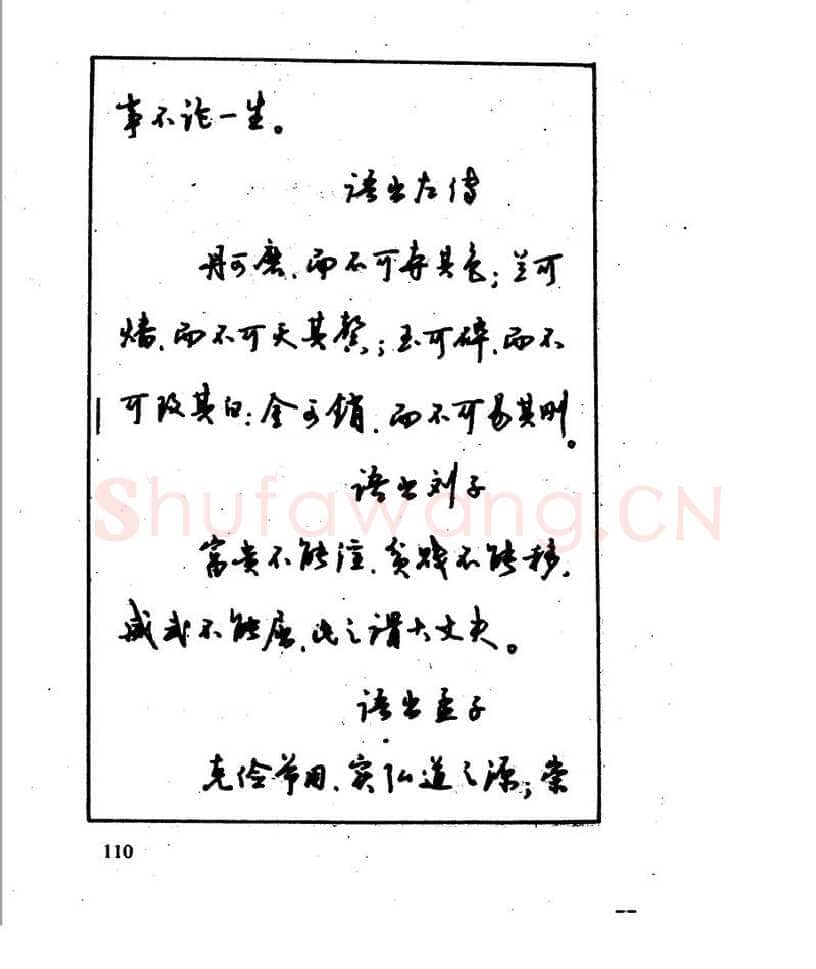 事不论一生。
语出左传
丹可磨，而不可夺其色；兰可
燔，而不可灭其馨；玉可碎，而不
可改其白；金可销，而不可易其刚。
语出刘子
Shufawang.CN
富贵不能淫，贫贱不能移，
威武不能屈，此之谓大丈夫。
语出孟子
克俭节用，实弘道之源；崇
110